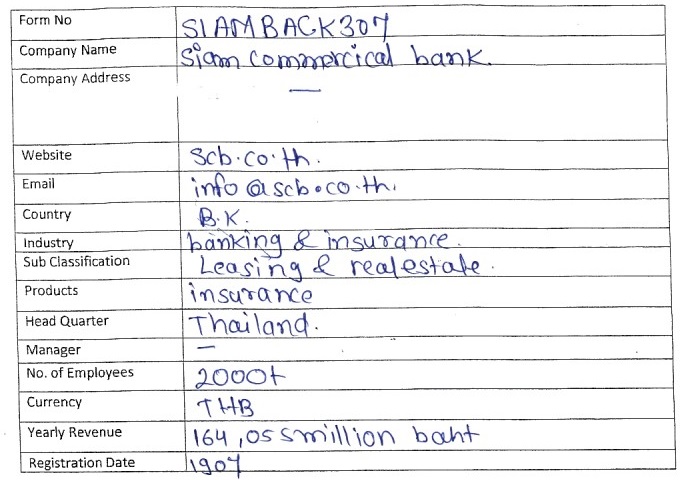 Form No SIAMBACK307
Company Name Siam commercical bank.
Company Address —
Website scb.co.th.
Email info@scb.co.th.
Country B.K.
Industry banking & insurance.
Sub Classification Leasing & realestate.
Products insurance
Head Quarter Thailand.
Manager —
No. of Employees 2000+
Currency THB
Yearly Revenue 164,055million baht
Registration Date 1907